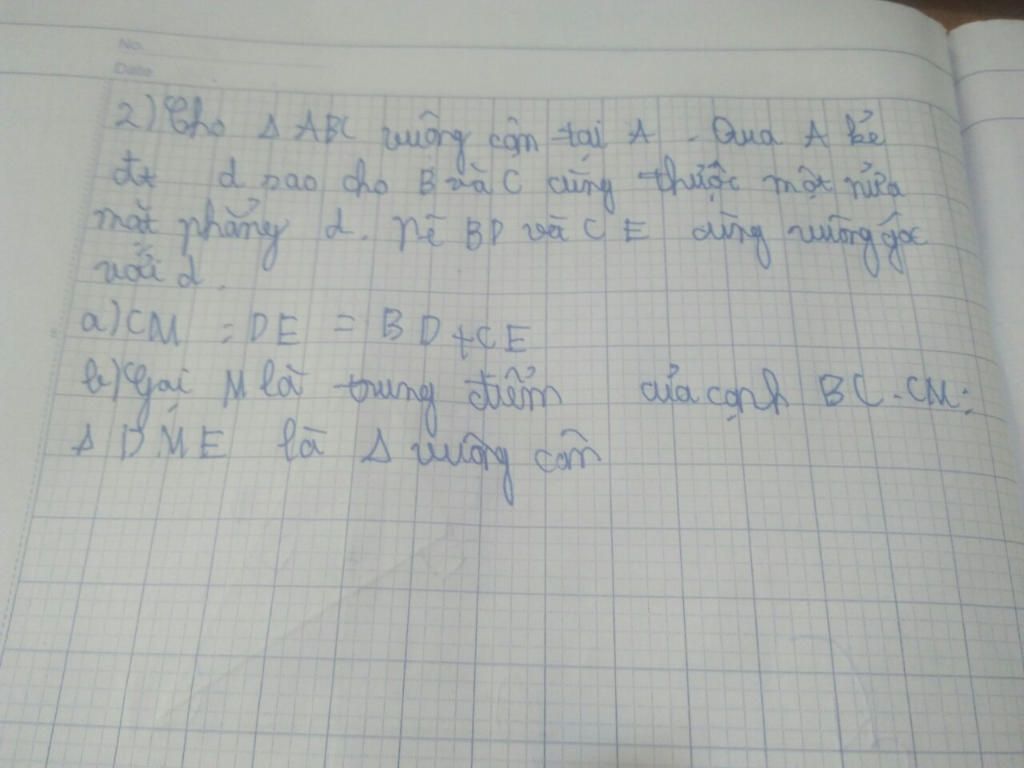 No.
Date
2) Cho Δ ABC vuông cân tại A. Qua A kẻ
đt d sao cho B và C cùng thuộc một nửa
mặt phẳng d. kẻ BD và CE cùng vuông góc
với d.
a) CM = DE = BD + CE
b) Gọi M là trung điểm của cạnh BC. CM:
Δ DME là Δ vuông cân